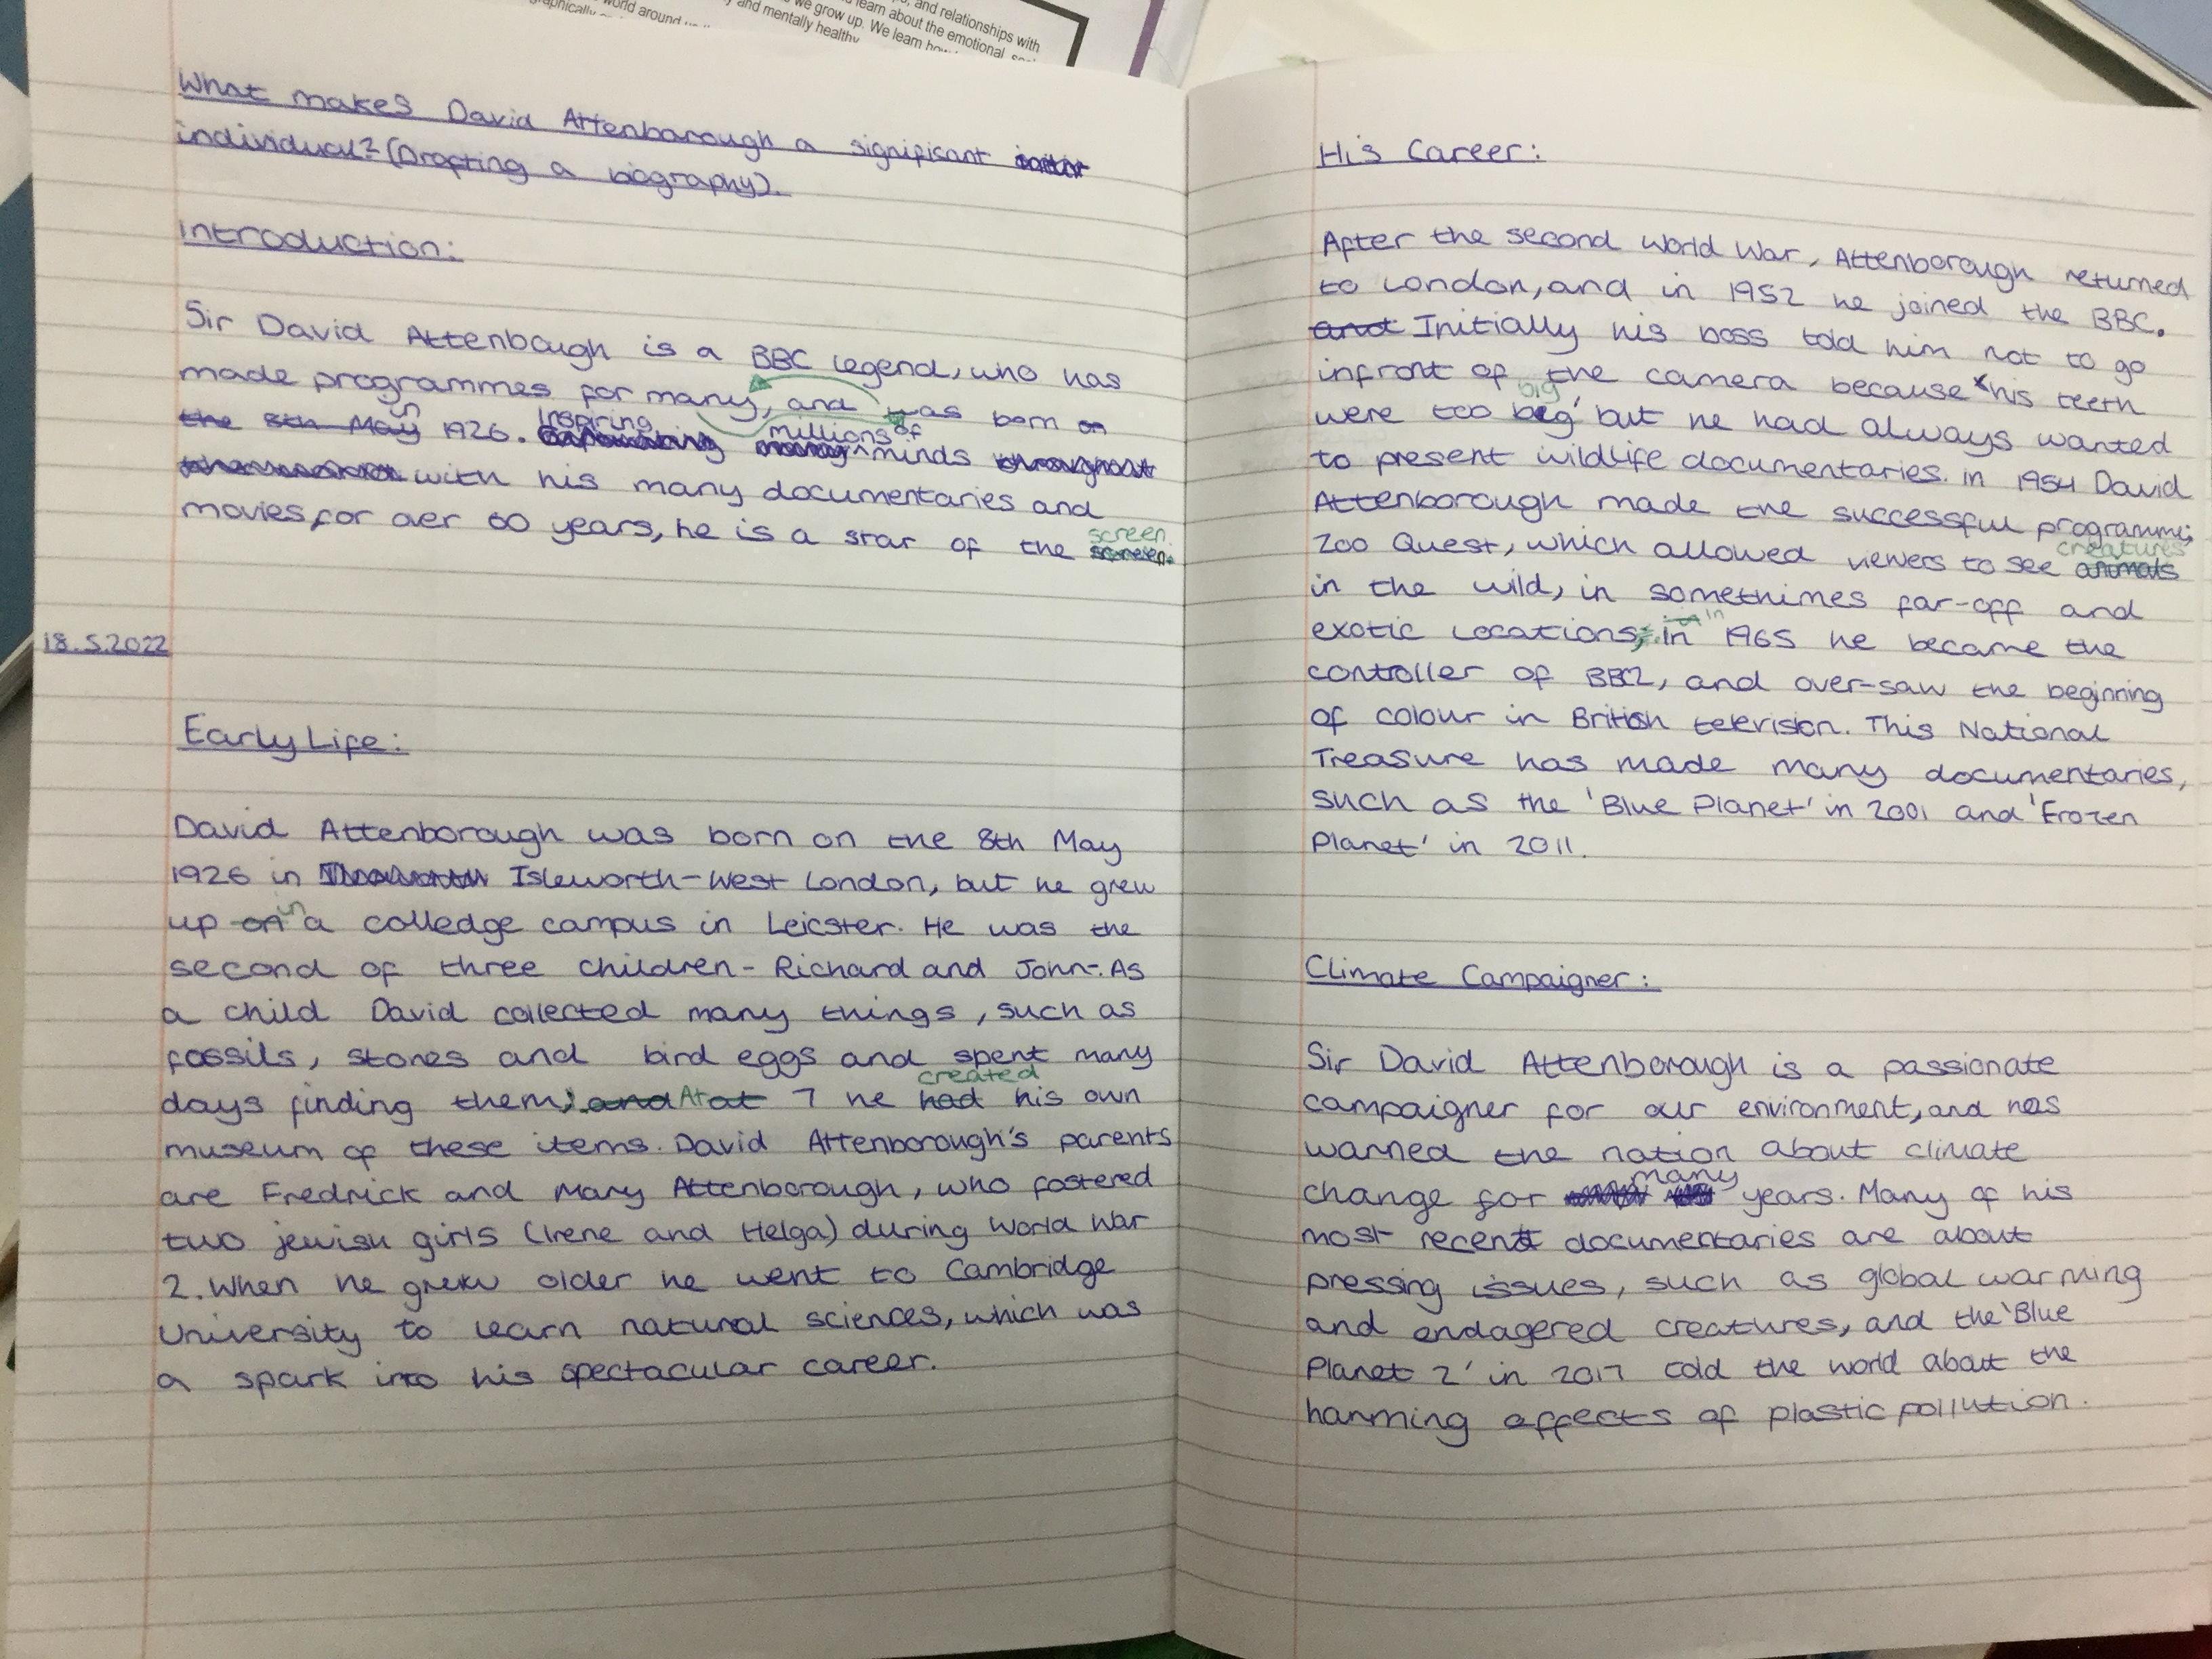 , and relationships with
we grow up. We learn about the emotional,
world around and mentally healthy
What makes David Attenborough a significant
individual? (Drafting a biography).
Introduction:
Sir David Attenbough is a BBC legend, who has
made programmes for many, and was born on
the 8th May in 1926. Inspiring many millions of minds throughout
with his many documentaries and
movies, for over 60 years, he is a star of the screen.
18.5.2022
Early Life:
David Attenborough was born on the 8th May
1926 in Isleworth-West London, but he grew
up on in a colledge campus in Leicster. He was the
second of three children - Richard and John-. As
a child David collected many things, such as
fossils, stones and bird eggs and spent many
days finding them; and At at 7 he had created his own
museum of these items. David Attenborough's parents
are Fredrick and Mary Attenborough, who fostered
two jewish girls (Irene and Helga) during World War
2. When he grew older he went to Cambridge
University to learn natural sciences, which was
a spark into his spectacular career.
His Career:
After the second World War, Attenborough returned
to London, and in 1952 he joined the BBC.
and Initially his boss told him not to go
infront of the camera because his teeth
were too big big, but he had always wanted
to present wildlife documentaries. In 1954 David
Attenborough made the successful programme;
Zoo Quest, which allowed viewers to see animals creatures
in the wild, in somethimes far-off and
exotic locations, in In 1965 he became the
controller of BBC2, and over-saw the beginning
of colour in British television. This National
Treasure has made many documentaries,
such as the 'Blue Planet' in 2001 and 'Frozen
Planet' in 2011.
Climate Campaigner:
Sir David Attenborough is a passionate
campaigner for our environment, and has
warned the nation about climate
change for many years. Many of his
most recent documentaries are about
pressing issues, such as global warming
and endagered creatures, and the 'Blue
Planet 2' in 2017 told the world about the
harming effects of plastic pollution.